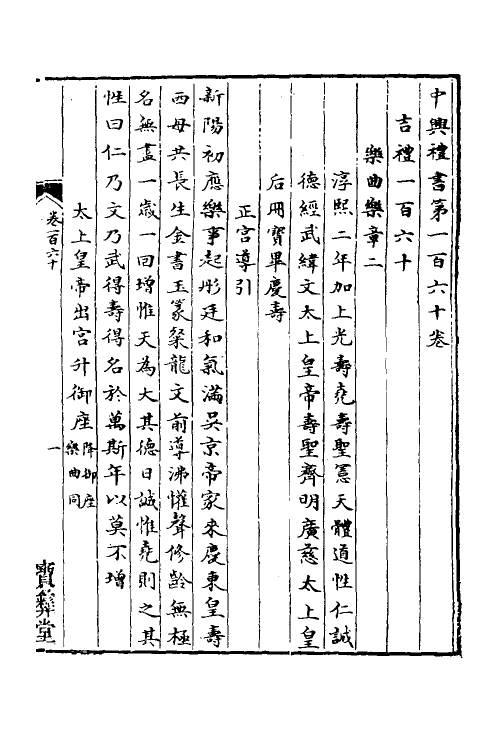 中興禮書第一百六十卷
吉禮一百六十
樂曲樂章二
淳熙二年加上光壽堯壽聖憲天體道性仁誠
德經武緯文太上皇帝壽聖齊明廣慈太上皇
后冊寶畢慶壽
正宮導引
新陽初應樂事起彤廷和氣滿吳京帝家來慶東皇壽
西母共長生金書玉篆粲龍文前導沸懽聲修齡無極
名無盡一歲一回增惟天為大其德曰誠惟堯則之其
性曰仁乃文乃武得壽得名於萬斯年以莫不增
太上皇帝出宮升御座降御座樂曲同
卷一百六十
一
寶彝堂